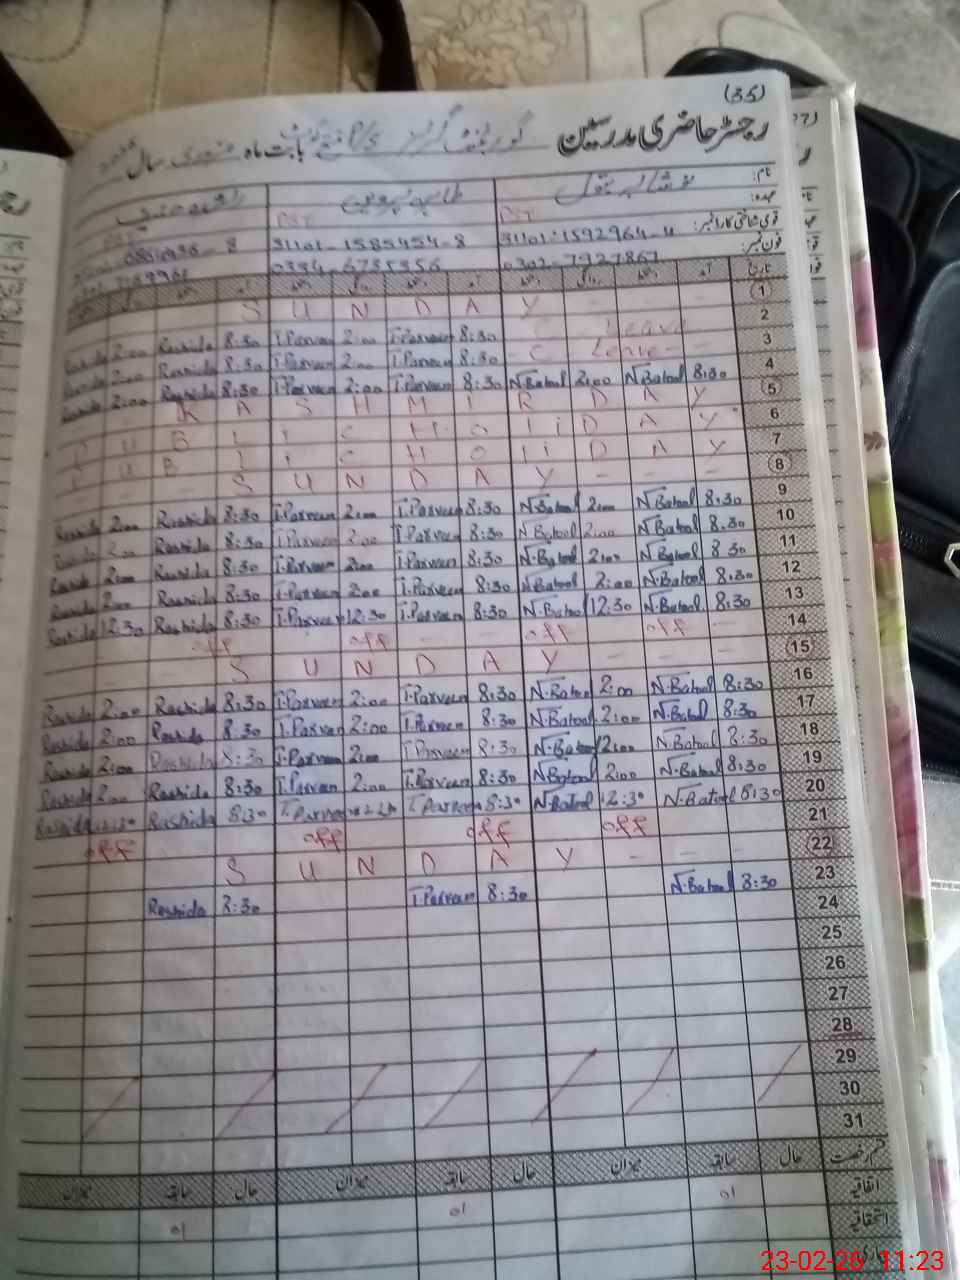 (35)
رجسٹر حاضری مدرسین گورنمنٹ گرلز بابت ماہ فروری سال
نام:
عہدہ: PST PST
قومی شناختی کارڈ نمبر: 31101-1592964-4 31101-1585454-8
فون نمبر: 0302-7927867 0334-6735356
تاریخ
1 S U N D A Y - - -
2 Rashida 2:00 Rashida 8:30 T.Parveen 2:00 T.Parveen 8:30 C Leave
3 Rashida 2:00 Rashida 8:30 T.Parveen 2:00 T.Parveen 8:30 C Leave -
4 Rashida 2:00 Rashida 8:30 T.Parveen 2:00 T.Parveen 8:30 N.Batool 2:00 N.Batool 8:30
5 K A S H M I R D A Y
6 P U B L i C H o l i D A Y
7 P U B L i C H O l i D A Y
8 - - - S U N D A Y - - -
9 Rashida 2:00 Rashida 8:30 T.Parveen 2:00 T.Parveen 8:30 N.Batool 2:00 N.Batool 8:30
10 Rashida 2:00 Rashida 8:30 T.Parveen 2:00 T.Parveen 8:30 N.Batool 2:00 N.Batool 8:30
11 Rashida 2:00 Rashida 8:30 T.Parveen 2:00 T.Parveen 8:30 N.Batool 2:00 N.Batool 8:30
12 Rashida 2:00 Rashida 8:30 T.Parveen 2:00 T.Parveen 8:30 N.Batool 2:00 N.Batool 8:30
13 Rashida 12:30 Rashida 8:30 T.Parveen 12:30 T.Parveen 8:30 N.Batool 12:30 N.Batool 8:30
14 off off - - off - off -
15 S U N D A Y - - -
16 Rashida 2:00 Rashida 8:30 T.Parveen 2:00 T.Parveen 8:30 N.Batool 2:00 N.Batool 8:30
17 Rashida 2:00 Rashida 8:30 T.Parveen 2:00 T.Parveen 8:30 N.Batool 2:00 N.Batool 8:30
18 Rashida 2:00 Rashida 8:30 T.Parveen 2:00 T.Parveen 8:30 N.Batool 2:00 N.Batool 8:30
19 Rashida 2:00 Rashida 8:30 T.Parveen 2:00 T.Parveen 8:30 N.Batool 2:00 N.Batool 8:30
20 Rashida 12:30 Rashida 8:30 T.Parveen 12:30 T.Parveen 8:30 N.Batool 12:30 N.Batool 8:30
21 off off off off
22 S U N D A Y - - -
23 Rashida 8:30 T.Parveen 8:30 N.Batool 8:30
24
25
26
27
28
29
30
31
قسم رخصت حال سابقہ میزان حال سابقہ میزان حال سابقہ میزان
اتفاقیہ 01 01 01
استحقاقیہ
23-02-26 11:23